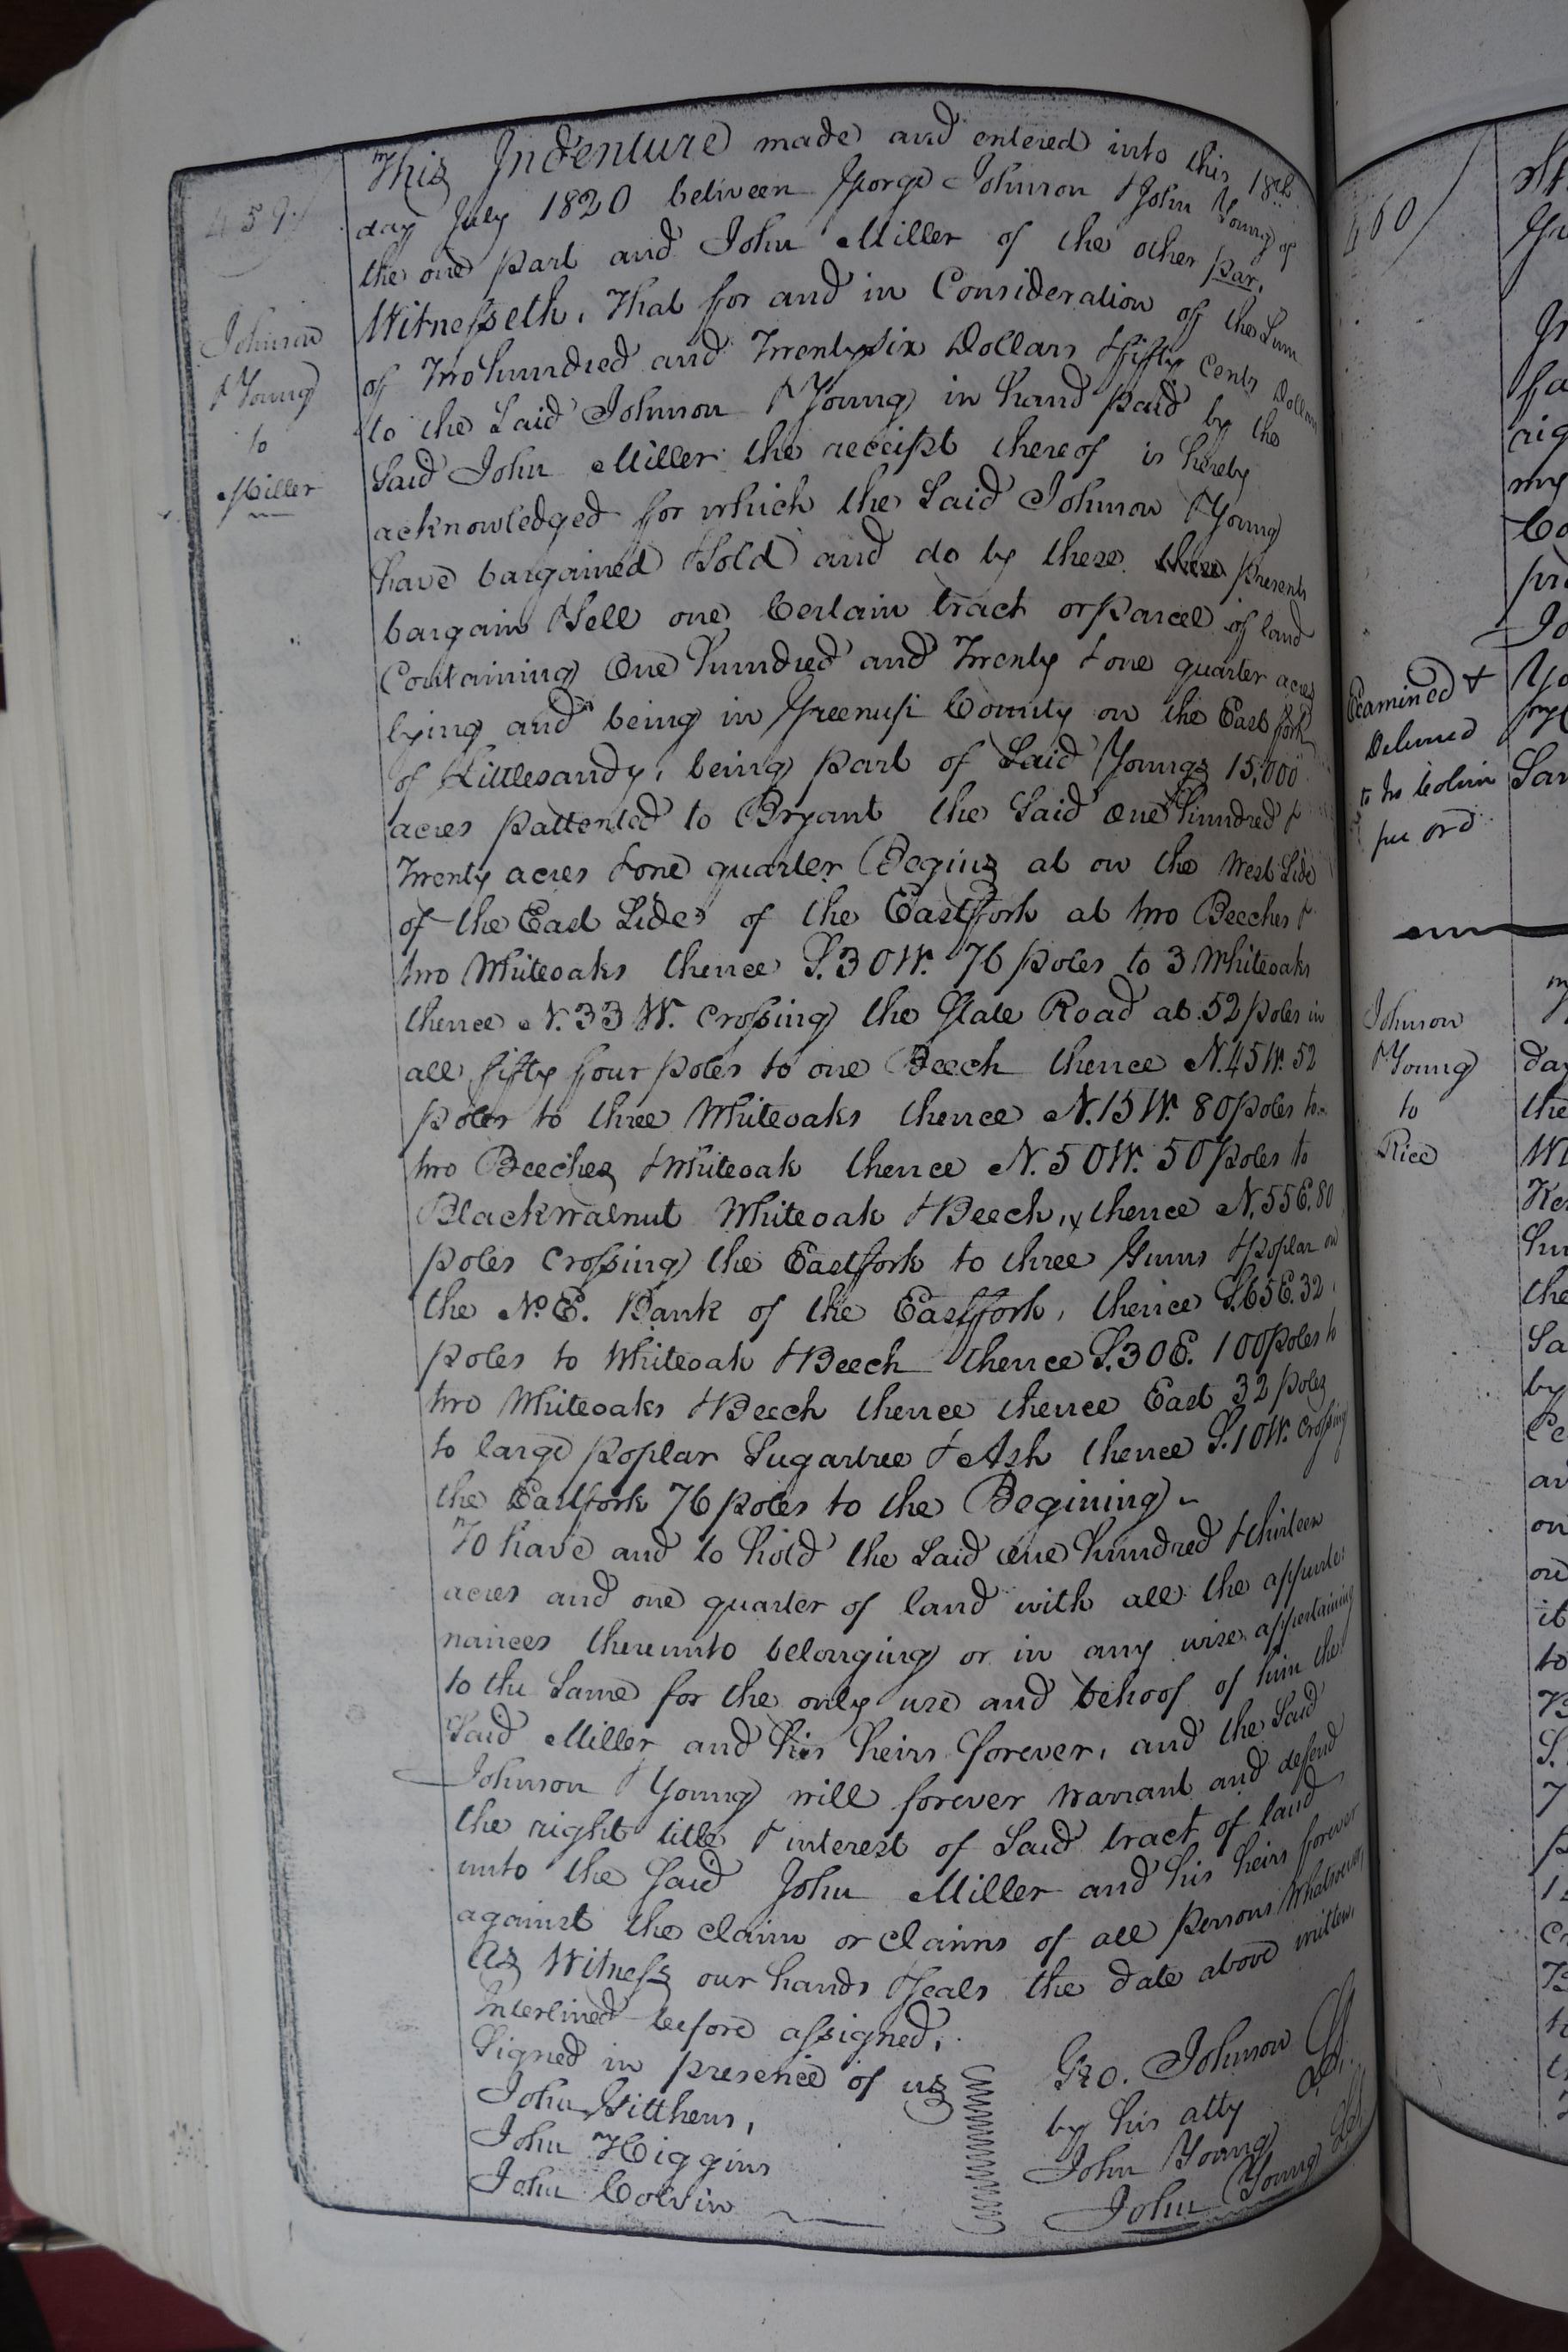 459
Johnson
& Young
to
Miller
This Indenture made and entered into this 18th
day July 1820 between George Johnson & John Young of
the one part and John Miller of the other par,
Witnesseth, That for and in Consideration of the Sum
of Two hundred and Twenty six Dollars & fifty Cents Dollars
to the Said Johnson & Young in hand paid by the
Said John Miller the receipt thereof is hereby
acknowledged for which the Said Johnson & Young
have bargained & Sold and do by these these presents
bargain & Sell one Certain tract or parcel of land
Containing One hundred and Twenty & one quarter acres
lying and being in Greenup County on the East fork
of Littlesandy, being part of Said Youngs 15,000
acres pattented to Bryant the Said One hundred &
Twenty acres & one quarter Begins at on the West Side
of the East Side of the Eastfork at two Beeches &
two Whiteoaks thence S. 30 W. 76 poles to 3 Whiteoaks
thence N. 33 W. Crossing the State Road at 52 poles in
all fifty four poles to one Beech thence N. 45 W. 52
poles to three Whiteoaks thence N. 15 W. 80 poles to
two Beeches & Whiteoak thence N. 50 W. 50 poles to
Blackwalnut Whiteoak & Beech, thence N. 55 E. 80
poles Crossing the Eastfork to three Gums & poplar on
the No. E. Bank of the Eastfork, thence S. 65 E. 32
poles to Whiteoak & Beech thence S. 30 E. 100 poles to
two Whiteoaks & Beech thence thence East 32 poles
to large poplar Sugartree & Ash thence S. 10 W. crossing
the Eastfork 76 poles to the Begining
To have and to hold the Said One hundred & thirteen
acres and one quarter of land with all the appurte
nances thereunto belonging or in any wise appertaining
to the Same for the only use and behoof of him the
Said Miller and his heirs forever, and the Said
Johnson & Young will forever warrant and defend
the right title & interest of Said tract of land
unto the Said John Miller and his heirs forever
against the claim or claims of all persons Whatsoever,
As Witness our hands & Seals the date above written,
Interlined before assigned,
Signed in presence of us
John Hitthens,
John Higgins
John Colvin
Geo. Johnson
by his atty
John Young
John Young
460
Examined &
Delivered
to Jno Colvin
per ord
Johnson
& Young
to
Rice